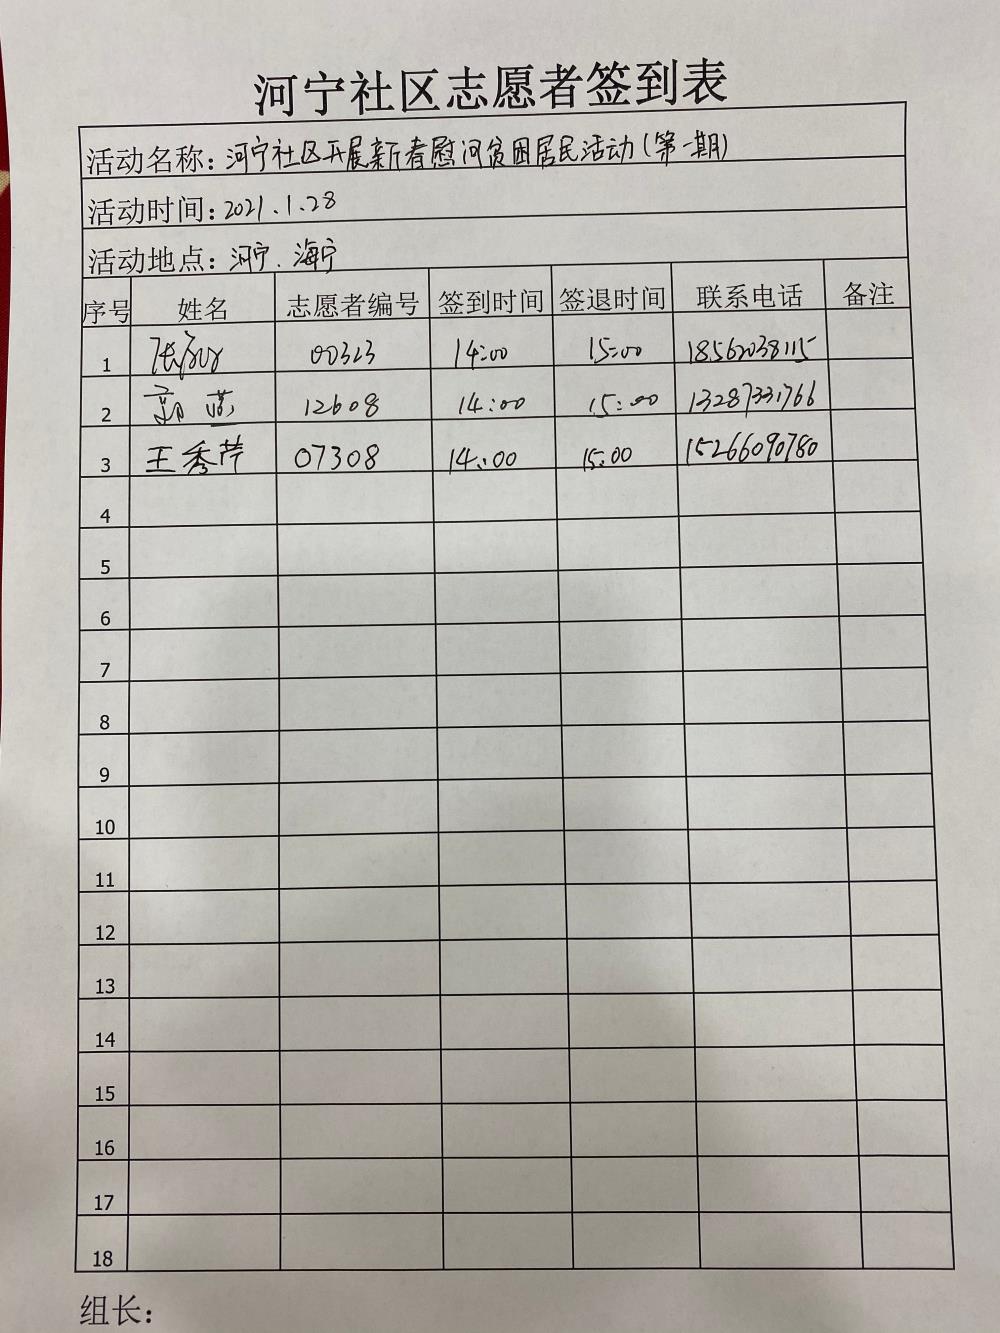 河宁社区志愿者签到表
活动名称：河宁社区开展新春慰问贫困居民活动(第一期)
活动时间：2021.1.28
活动地点：河宁.海宁
序号 姓名 志愿者编号 签到时间 签退时间 联系电话 备注
1 00323 14:00 15:00 18562038115
2 12608 14:00 15:00 13287331766
3 王秀芹 07308 14:00 15:00 15266090780
4
5
6
7
8
9
10
11
12
13
14
15
16
17
18
组长：